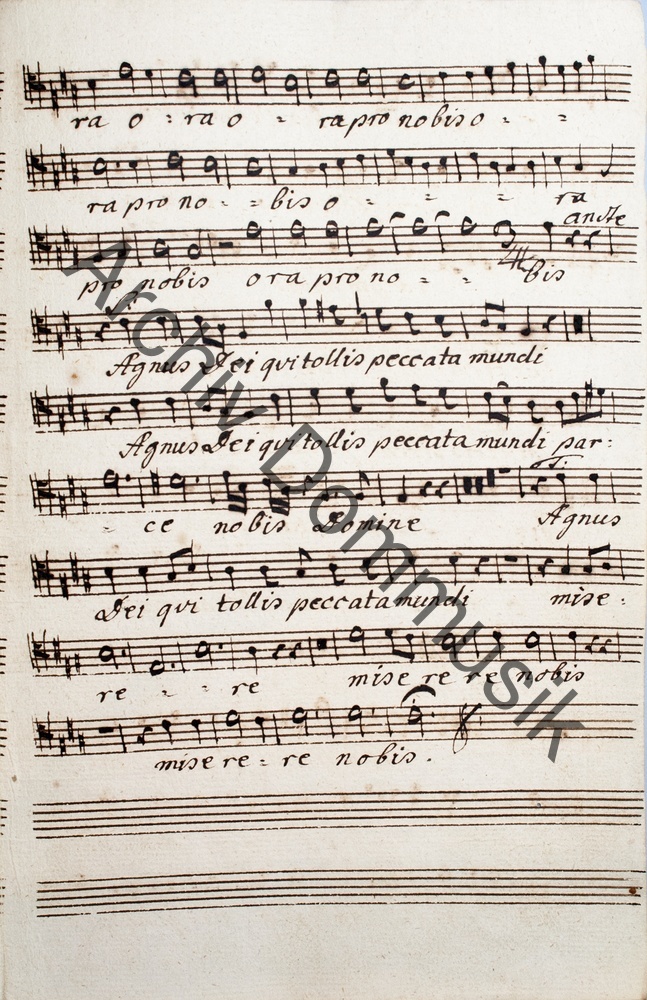 ra o - ra o - ra pro nobis o - -
ra pro no - - bis o - - - ra
andte
pro nobis ora pro no - - bis
Agnus Dei qui tollis peccata mundi
Agnus Dei qui tollis peccata mundi par:
- ce nobis Domine Agnus
Dei qui tollis peccata mundi mise:
re - - re misere re nobis
misere - re nobis.
Archiv Dommusik